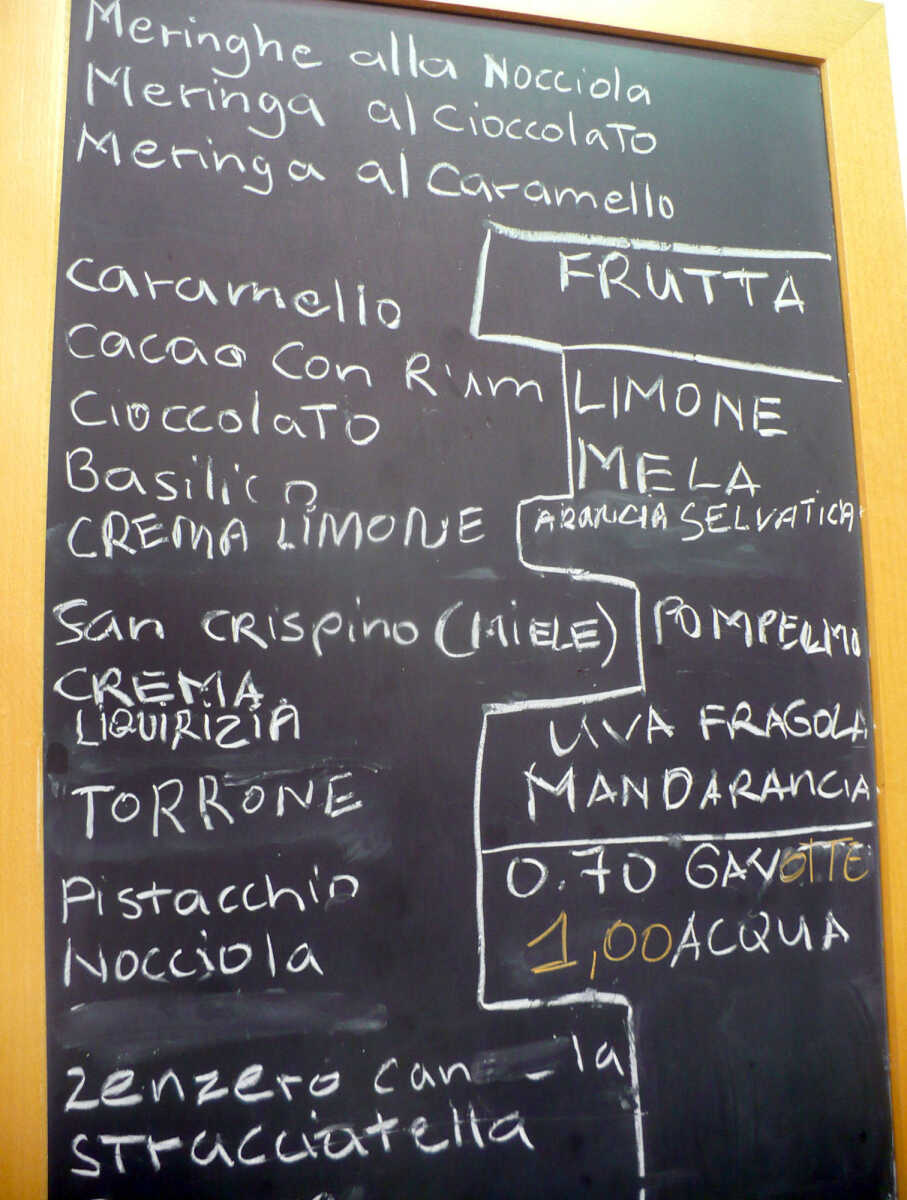 Meringhe alla Nocciola
Meringa al Cioccolato
Meringa al Caramello
Caramello
Cacao Con Rum
Cioccolato
Basilico
CREMA LIMONE
San CRispino (MIELE)
CREMA
LIQUIRIZIA
TORRONE
Pistacchio
Nocciola
zenzero can la
STracciatella
FRUTTA
LIMONE
MELA
ARANCIA SELVATICA
POMPELMO
UVA FRAGOLA
MANDARANCIA
0.70 GAVOTTE
1,00 ACQUA